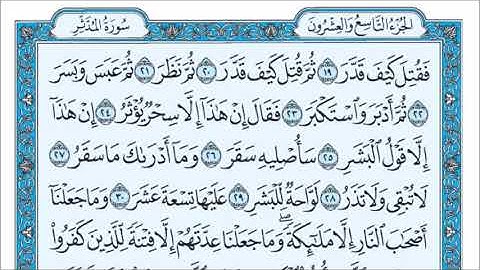 الجزء التاسع والعشرون
سورة المدثر
فَقُتِلَ كَيْفَ قَدَّرَ ١٩ ثُمَّ قُتِلَ كَيْفَ قَدَّرَ ٢٠ ثُمَّ نَظَرَ ٢١ ثُمَّ عَبَسَ وَبَسَرَ
٢٢ ثُمَّ أَدْبَرَ وَاسْتَكْبَرَ ٢٣ فَقَالَ إِنْ هَٰذَا إِلَّا سِحْرٌ يُؤْثَرُ ٢٤ إِنْ هَٰذَا
إِلَّا قَوْلُ الْبَشَرِ ٢٥ سَأُصْلِيهِ سَقَرَ ٢٦ وَمَا أَدْرَىٰكَ مَا سَقَرُ ٢٧
لَا تُبْقِي وَلَا تَذَرُ ٢٨ لَوَّاحَةٌ لِّلْبَشَرِ ٢٩ عَلَيْهَا تِسْعَةَ عَشَرَ ٣٠ وَمَا جَعَلْنَا
أَصْحَٰبَ النَّارِ إِلَّا مَلَٰٓئِكَةً ۙ وَمَا جَعَلْنَا عِدَّتَهُمْ إِلَّا فِتْنَةً لِّلَّذِينَ كَفَرُوا